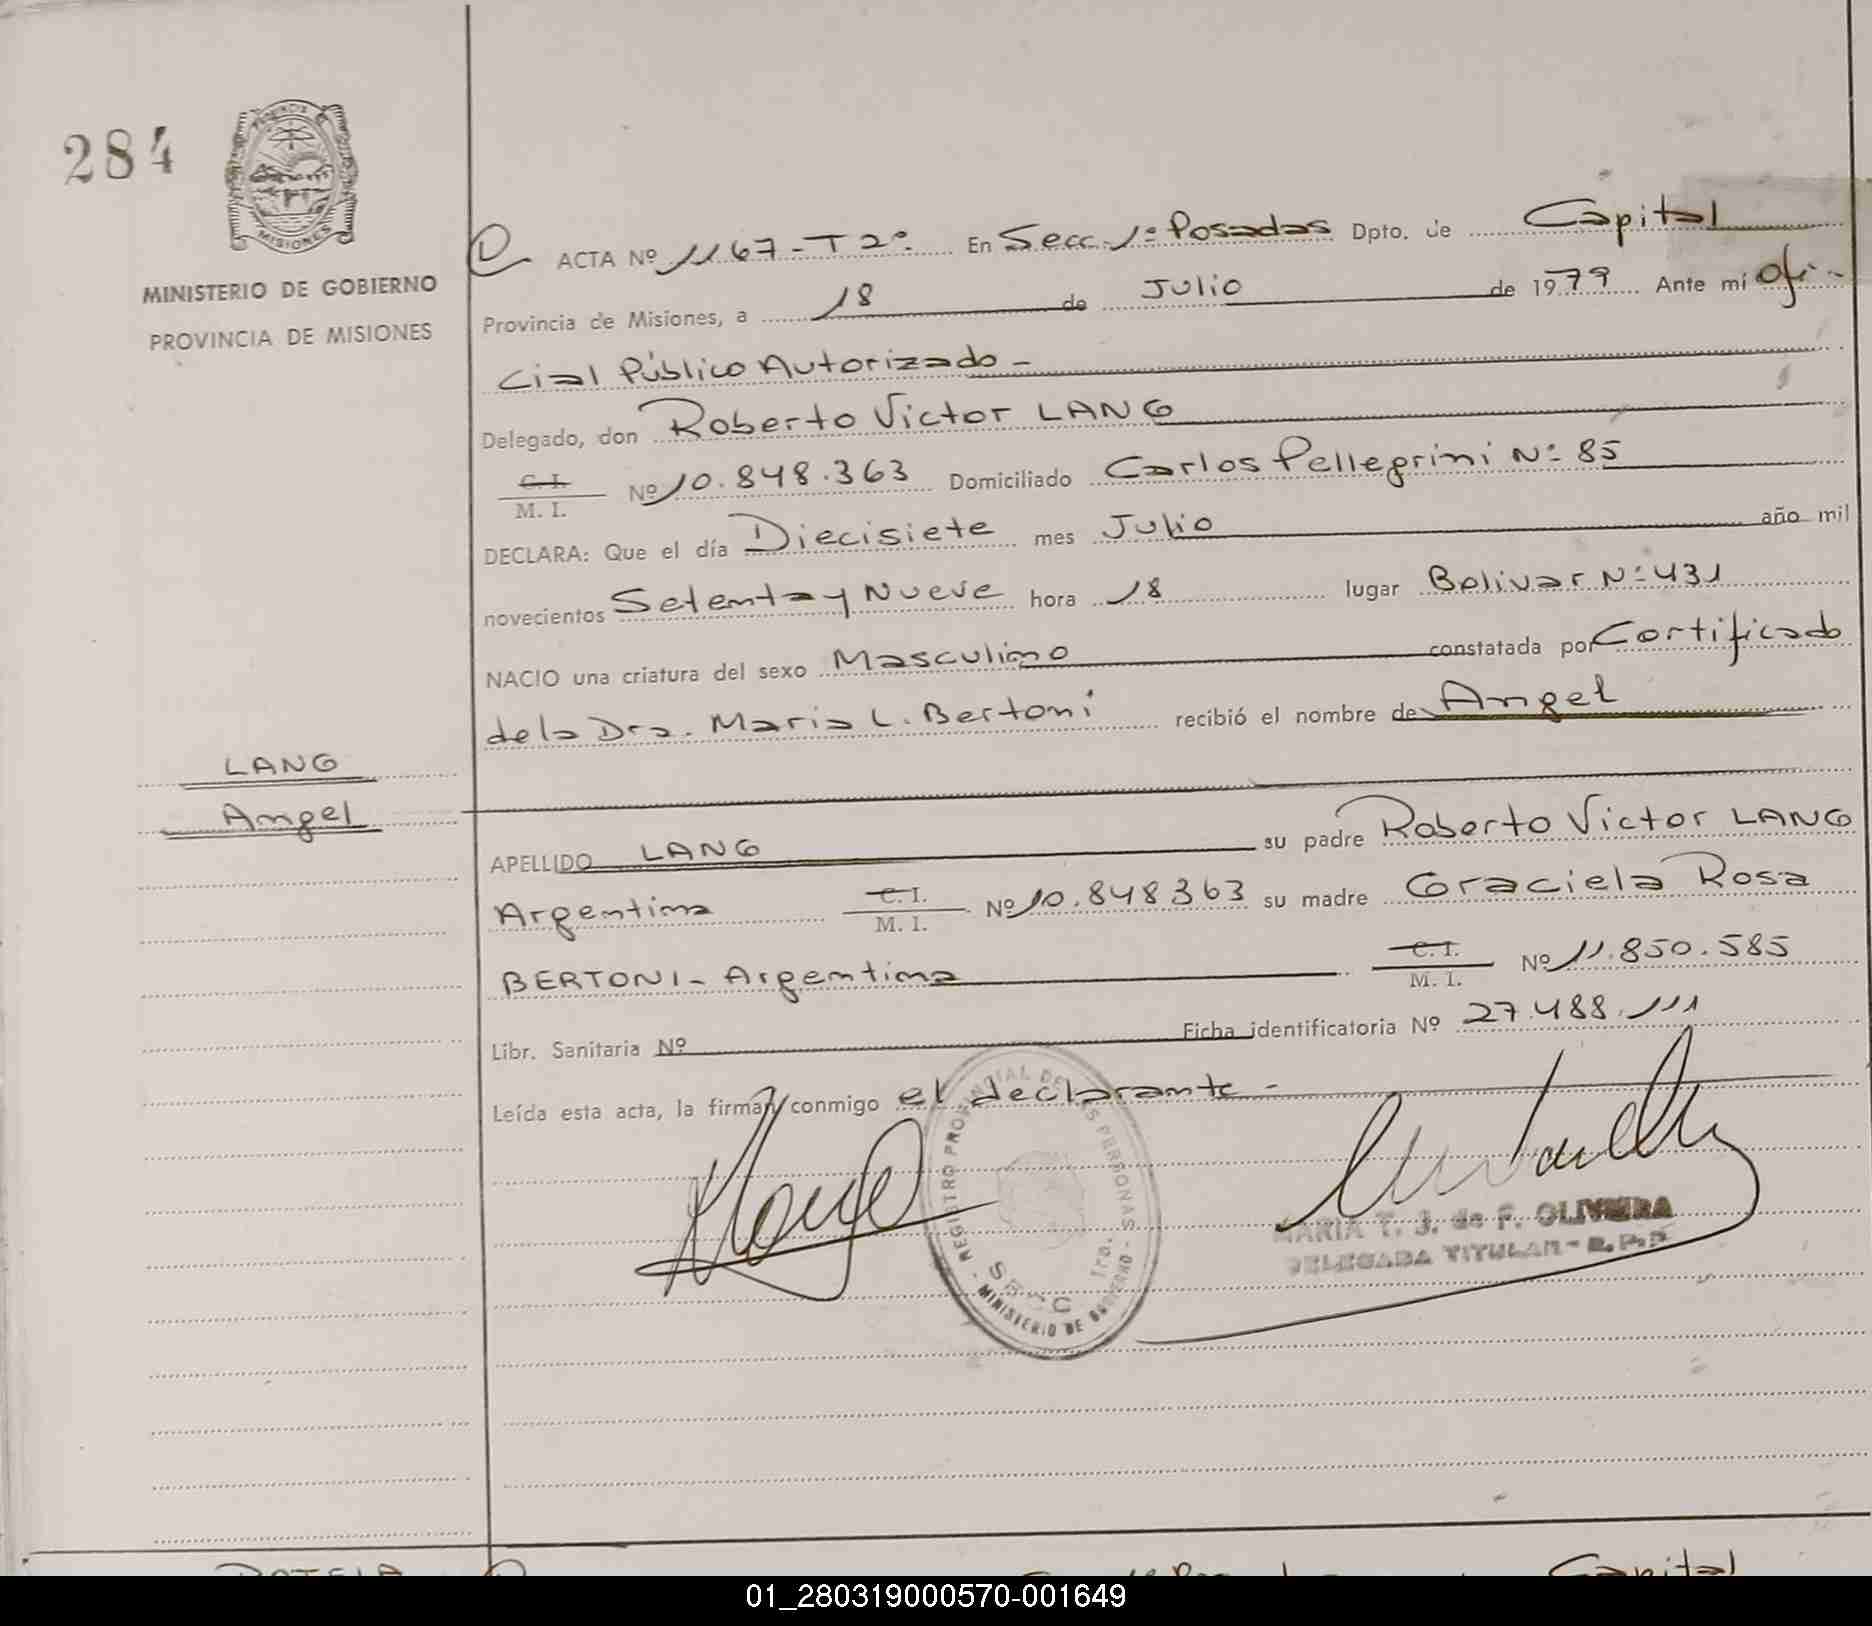 284
MINISTERIO DE GOBIERNO
PROVINCIA DE MISIONES
ACTA Nº 1167-T2º. En Secc. 1ª Posadas Dpto. de Capital
Provincia de Misiones, a 18 de Julio de 1979 Ante mí Ofi-
cial Público Autorizado -
Delegado, don Roberto Victor LANG
C. I.
M. I. Nº 10.848.363 Domiciliado Carlos Pellegrini Nº 85
DECLARA: Que el día Diecisiete mes Julio año mil
novecientos Setenta y Nueve hora 18 lugar Bolivar Nº 431
NACIO una criatura del sexo Masculino constatada por Certificado
de la Dra. Maria L. Bertoni recibió el nombre de Angel
LANG
Angel
APELLIDO LANG su padre Roberto Victor LANG
Argentina C. I. M. I. Nº 10.848363 su madre Graciela Rosa
BERTONI - Argentina C. I. M. I. Nº 11.850.585
Libr. Sanitaria Nº Ficha identificatoria Nº 27.488.111
Leída esta acta, la firman conmigo el declarante -
REGISTRO PROVINCIAL DE LAS PERSONAS - MINISTERIO DE GOBIERNO -
SECC 1ra.
MARIA T. J. de F. OLIVEIRA
DELEGADA TITULAR - R. P. P.
Capital
01_280319000570-001649